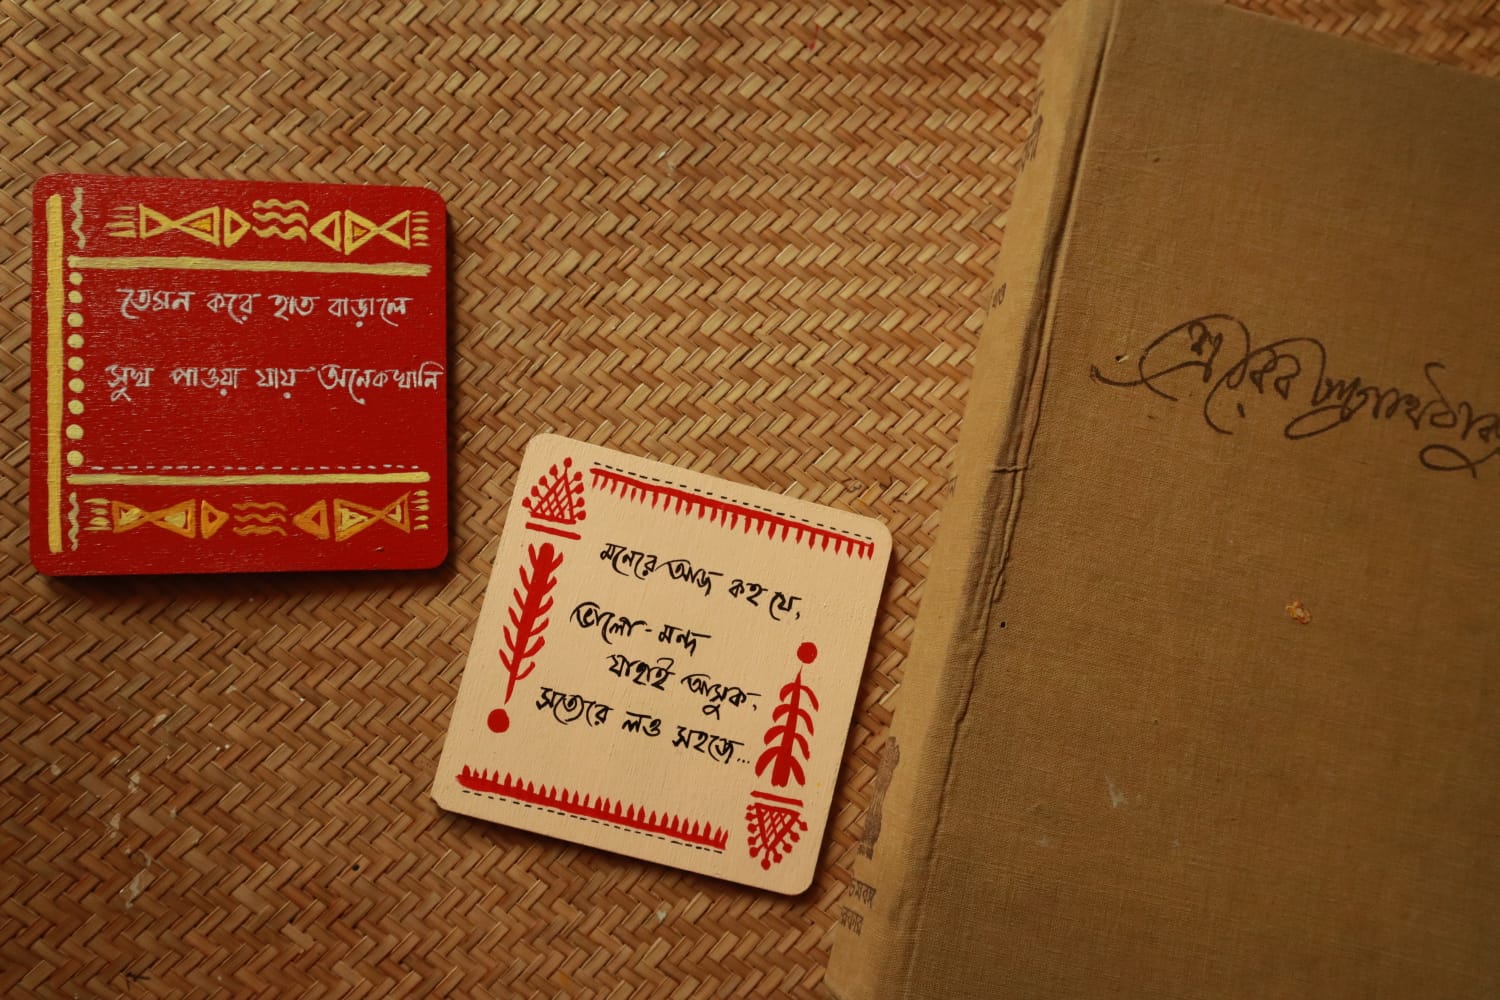 তেমন করে হাত বাড়ালে
সুখ পাওয়া যায় অনেকখানি
মনেরে আজ কহ যে,
ভালো-মন্দ
যাহাই আসুক,
সত্যেরে লও সহজে...
শ্রীরবীন্দ্রনাথ ঠাকুর
সরকার